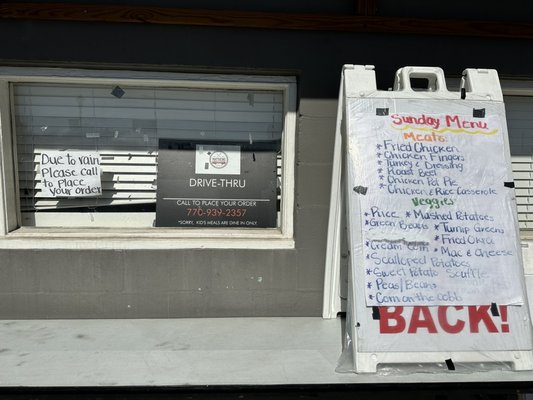 Due to rain
Please call
to Place
your order
DRIVE-THRU
CALL TO PLACE YOUR ORDER
770-939-2357
*SORRY, KID'S MEALS ARE DINE IN ONLY.
Sunday Menu
Meats:
* Fried Chicken
* Chicken Fingers
* Turkey & Dressing
* Roast Beef
* Chicken Pot Pie
* Chicken & Rice Casserole
Veggies
* Rice * Mashed Potatoes
* Green Beans * Turnip Greens
* Fried Okra
* Cream Corn * Mac & Cheese
* Scalloped Potatoes
* Sweet Potato Souffle
* Peas/Beans
* Corn on the cobb
BACK!